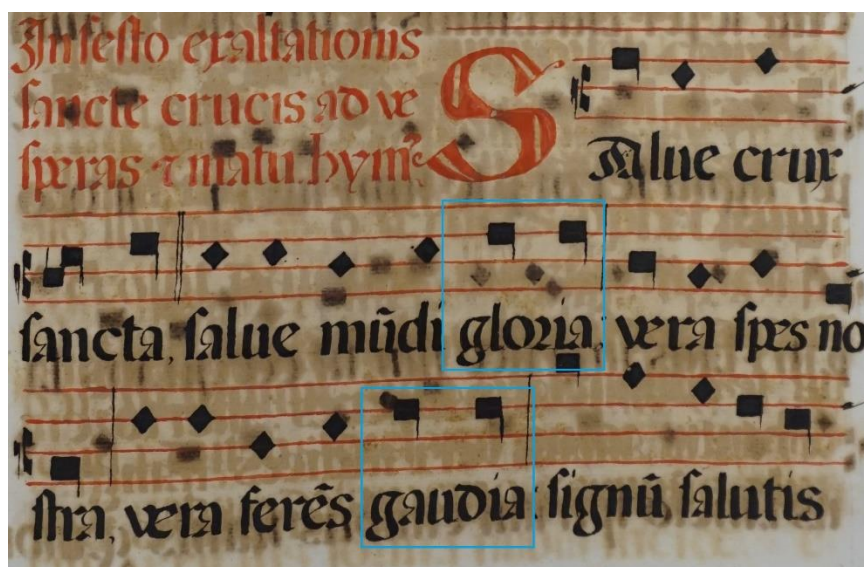 In festo exaltationis
sancte crucis ad ve
speras ⁊ matu. hymꝰ
SAlue crux
sancta, salue mũdi gloria, vera spes no
stra, vera ferẽs gaudia: signũ salutis